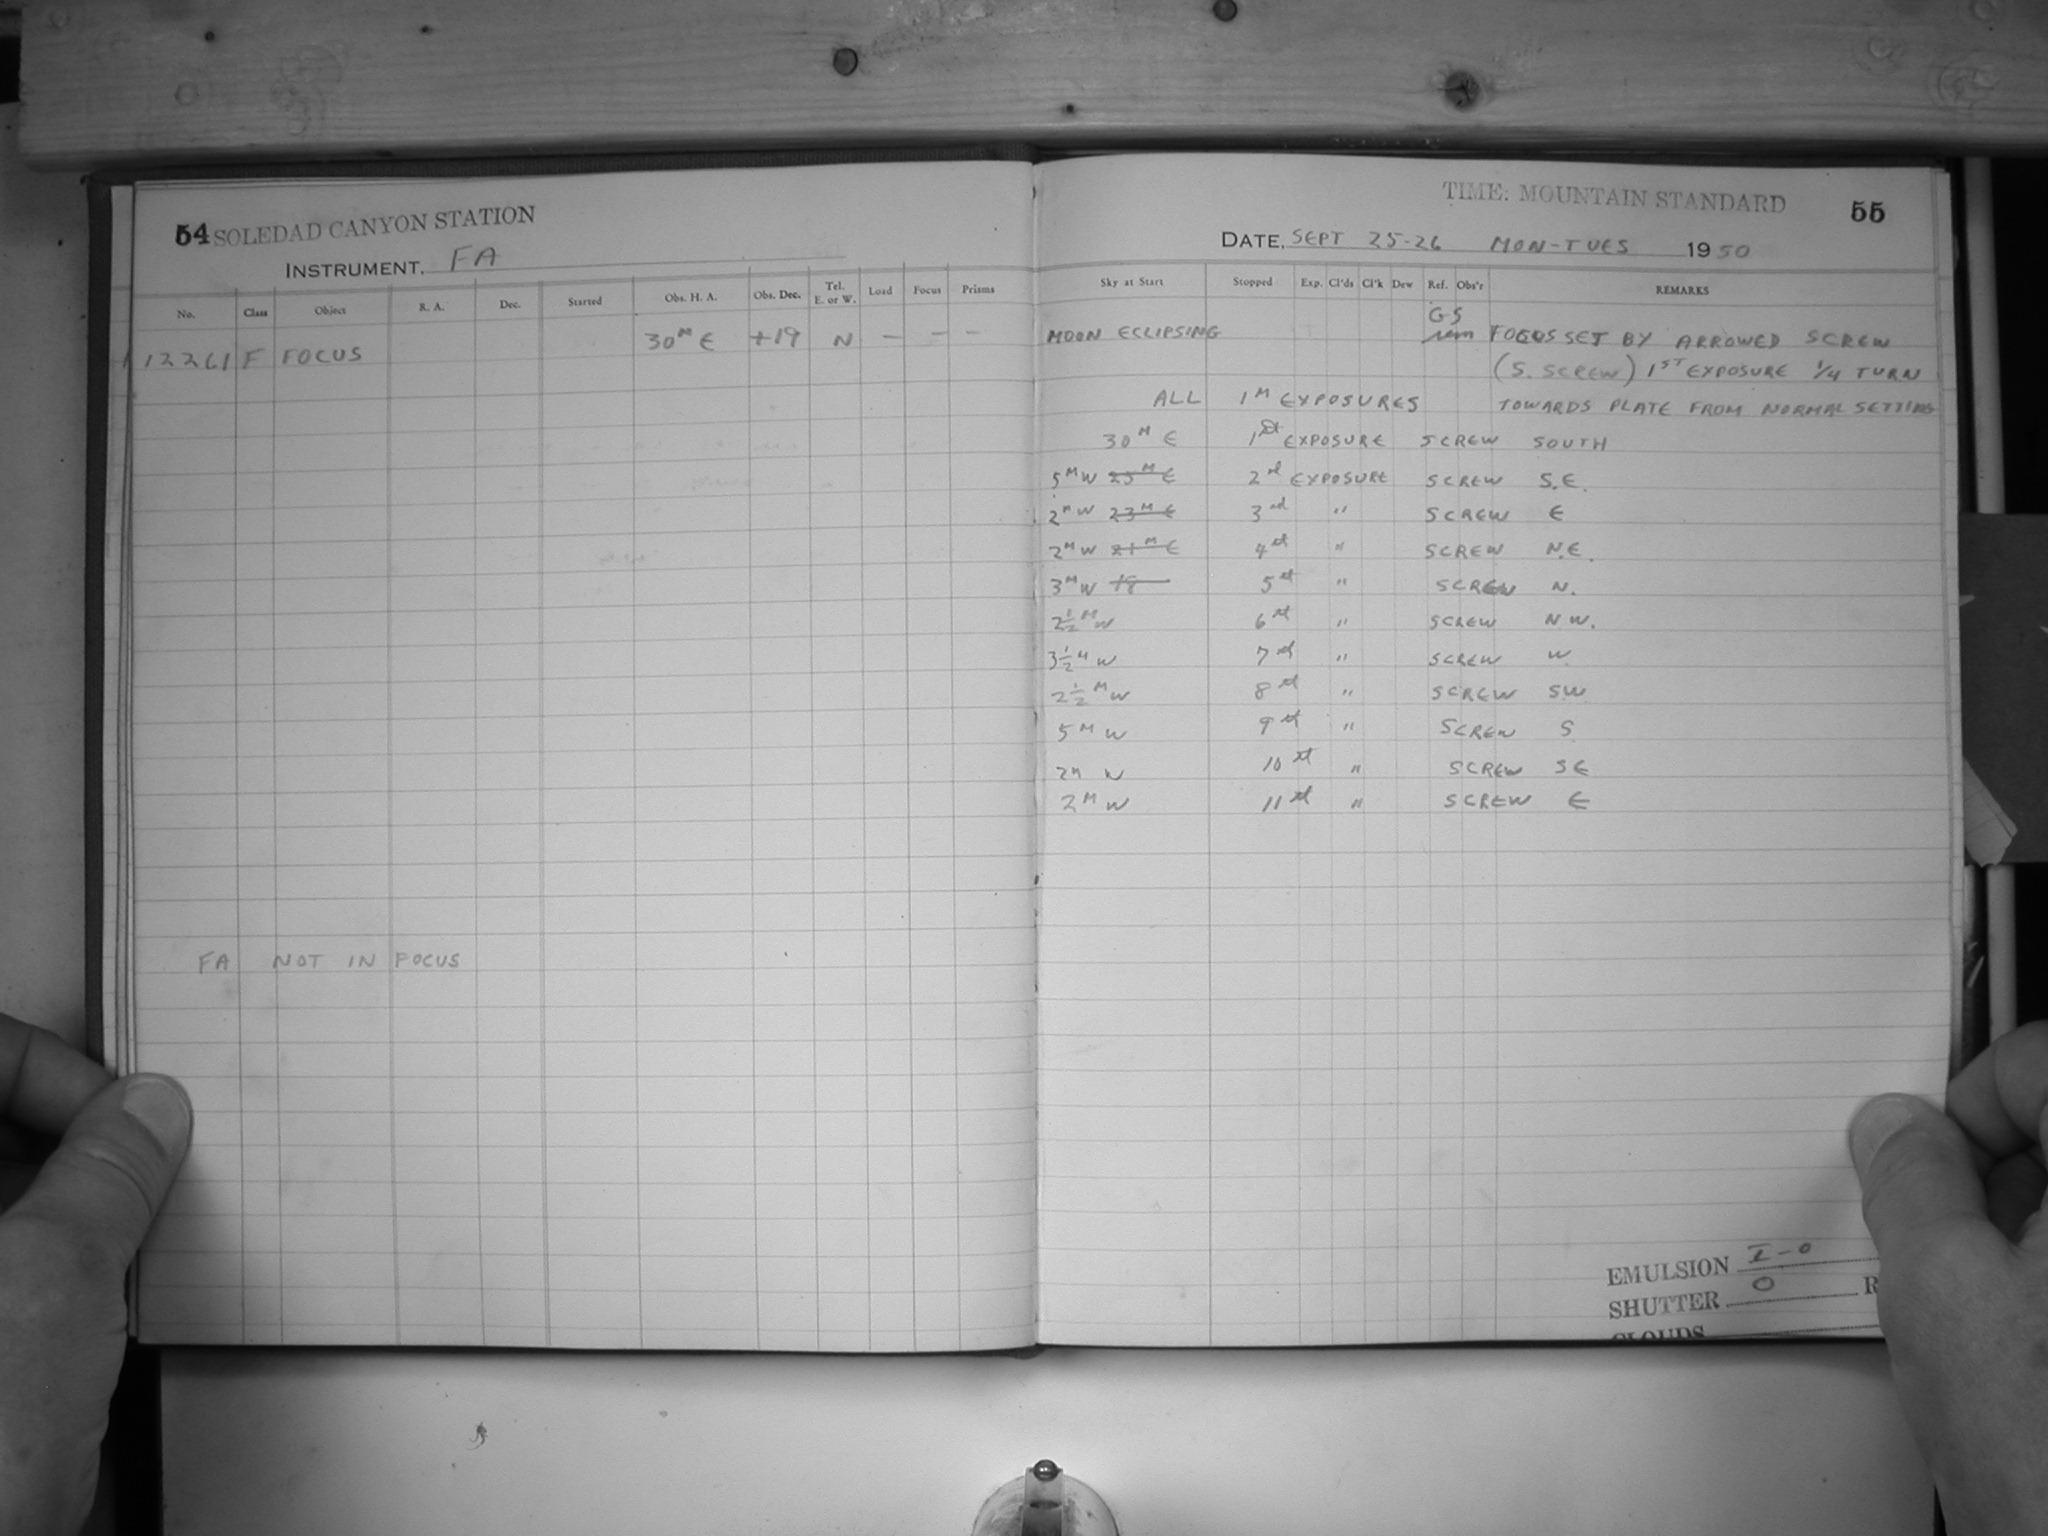 54 SOLEDAD CANYON STATION
INSTRUMENT, FA
No. Class Object R. A. Dec. Started Obs. H. A. Obs. Dec. Tel. E. or W. Load Focus Prisms
12261 F FOCUS 30ᴹ E +19 N — — —
FA NOT IN FOCUS
TIME: MOUNTAIN STANDARD 55
DATE, SEPT 25-26 MON-TUES 1950
Sky at Start Stopped Exp. Cl'ds Cl'k Dew Ref. Obs'r REMARKS
GS
MOON ECLIPSING FOCUS SET BY ARROWED SCREW
(S. SCREW) 1ST EXPOSURE 1/4 TURN
ALL 1ᴹ EXPOSURES TOWARDS PLATE FROM NORMAL SETTING
30ᴹ E 1st EXPOSURE SCREW SOUTH
5ᴹ W 25ᴹ E 2nd EXPOSURE SCREW S.E.
2ᴹ W 23ᴹ E 3rd " SCREW E
2ᴹ W 21ᴹ E 4th " SCREW N.E.
3ᴹ W 18 5th " SCREW N.
2½ᴹ W 6th " SCREW N W.
3½ᴹ W 7th " SCREW W
2½ᴹ W 8th " SCREW SW
5ᴹ W 9th " SCREW S
2ᴹ W 10th " SCREW SE
2ᴹ W 11th " SCREW E
EMULSION I-O
SHUTTER O R
CLOUDS